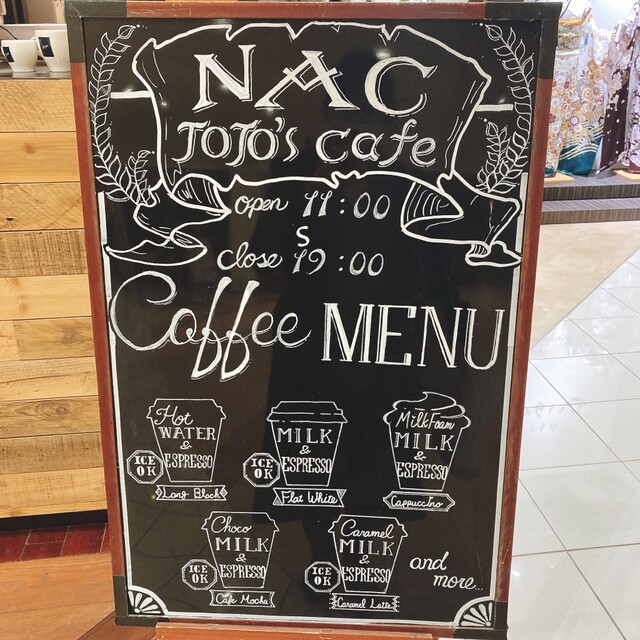 NAC
JOJO'S Cafe
open 11:00
S
close 19:00
Coffee MENU
Hot
WATER
&
ESPRESSO
ICE
OK
Long Black
MILK
&
ESPRESSO
ICE
OK
Flat White
Milk Foam
MILK
&
ESPRESSO
Cappuccino
Choco
MILK
&
ESPRESSO
ICE
OK
Cafe Mocha
Caramel
MILK
&
ESPRESSO
ICE
OK
Caramel Latte
and
more...